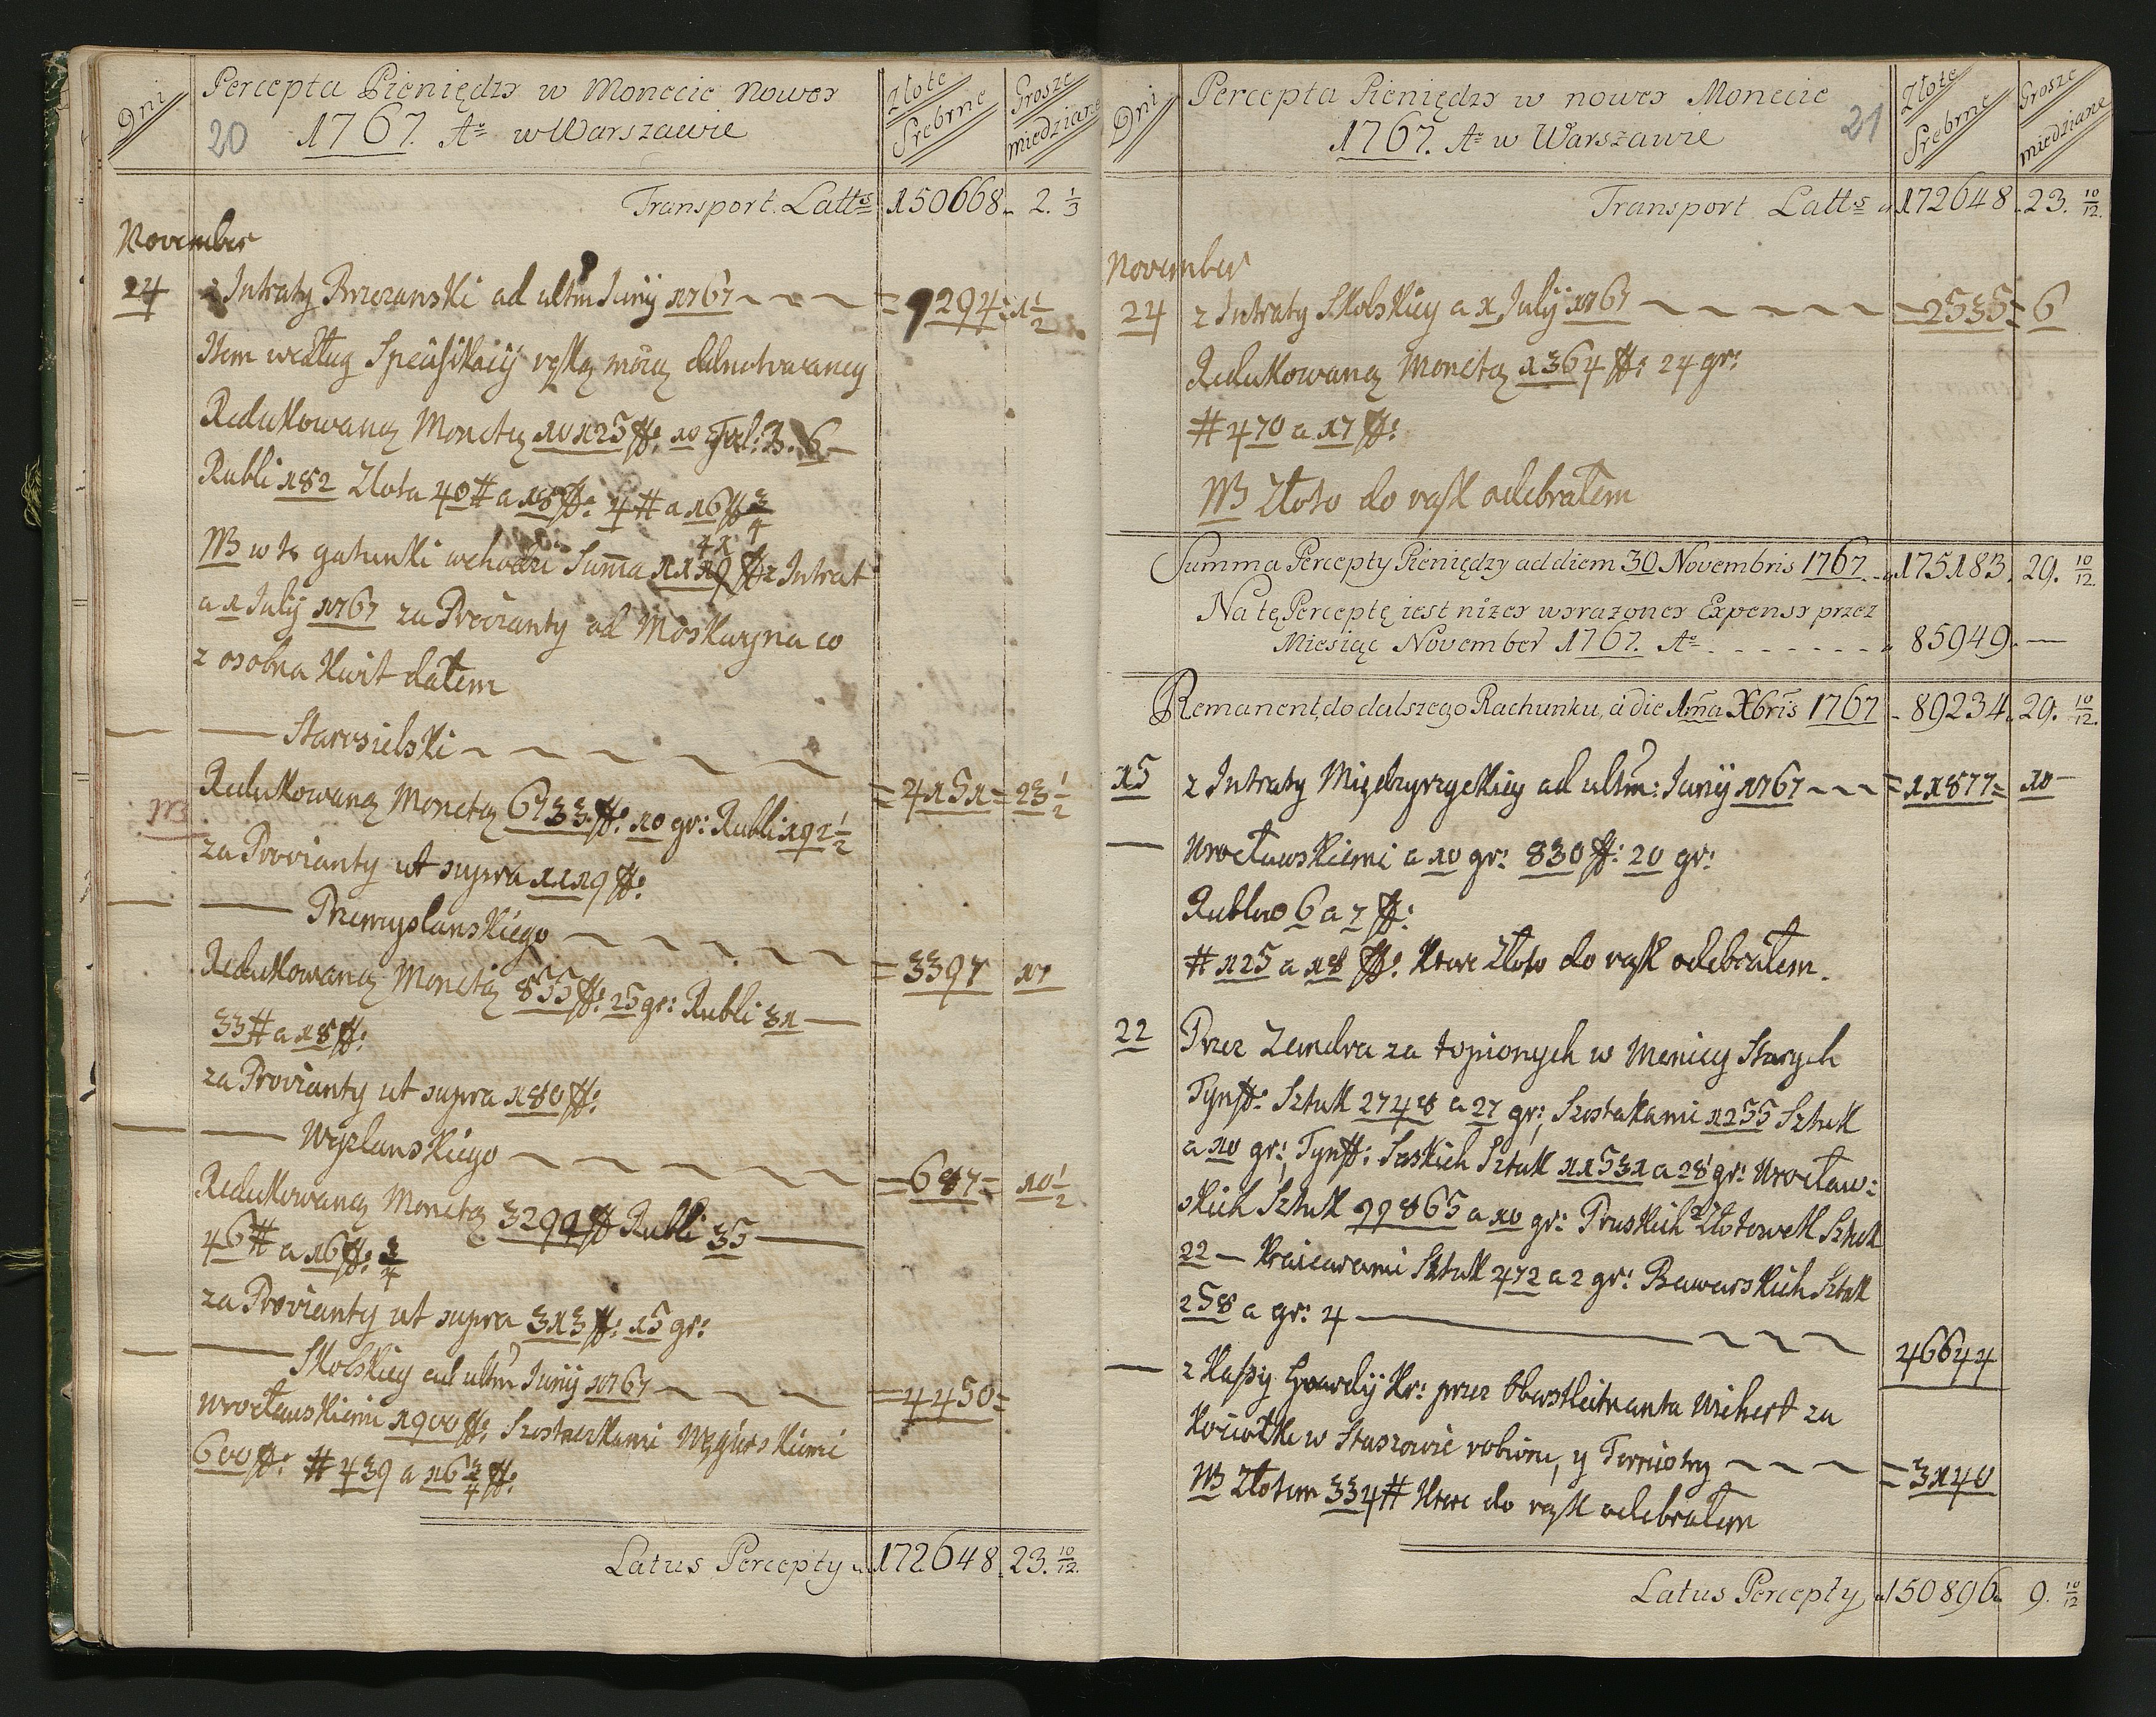 Dni
Percepta Pieniędzy w Monecie nowey
20 1767. Ao w Warszawie
Złote Srebrne
Grosze miedziane
Transport Latts 150668. 2. 1/3
November
24 z Intraty Brzezanski ad ultm Junij 1767 = 9294: 1 1/2
Item według Specifikacij ręką moią
Redukowaną Monetą 10125 ff: 10 Tal: B. 6 —
Rubli 182 Złota 40 # a 18 ff: 4 # a 16 ff 3/4
NB w te gatunki wchodzi Summa ff z Intrat
a 1 July 1767 za Prowianty od Moskwy na co
z osobna Kwit dałem
— — Starosielski
Redukowaną Monetą 6733 ff: 10 gr: Rubli 192 1/2 = 4151 = 23 1/2
NB za Prowianty ut supra 1119 ff:
— — Przemyslanskiego
Redukowaną Monetą 855 ff: 25 gr: Rubli 31 — = 3397 17
33 # a 18 ff:
za Prowianty ut supra 180 ff:
— — Węzlanskiego
Redukowaną Monetą 3299 ff Rubli 35 — = 687 = 10 1/2
46 # a 16 ff: 3/4
za Prowianty ut supra 313 ff: 15 gr:
— — Skolskiey ad ultm Junij 1767 = 4450 =
Wrocławskiemi 1900 ff: Szostaczkami Węgierskiemi
600 ff: # 439 a 16 3/4 ff:
Latus Percepty 172648. 23. 10/12.
Dni
Percepta Pieniędzy w nowey Monecie
1767. Ao w Warszawie 21
Złote Srebrne
Grosze miedziane
Transport Latts 172648. 23. 10/12.
November
24 z Intraty Skolskiey a 1 July 1767 = 2535 = 6
Redukowaną Monetą 1364 ff: 24 gr:
# 470 a 17 ff:
NB Złoto do rąk odebrałem
Summa Percepty Pieniędzy ad diem 30 Novembris 1767 175183. 29. 10/12.
Na tę Perceptę iest niżey wyrażoney Expensy przez
Miesiąc November 1767. Ao 85949. —
Remanent do dalszego Rachunku, a die 1ma Xbris 1767 89234. 29. 10/12.
15 z Intraty Międzyrzyckiey ad ultm: Junij 1767 = 11877 = 10 —
— Wrocławskiemi a 10 gr: 830 ff: 20 gr:
Rublow 6 a 7 ff:
# 125 a 18 ff: Ktore Złoto do rąk odebrałem.
22 Przez Zendra za topionych w Menicy Starych
Tynff: Sztuk 2748 a 27 gr; Szostakami 1255 Sztuk
a 10 gr:, Tynff: Saskich Sztuk 11531 a 28 gr: Wrocław:
skich Sztuk 99865 a 10 gr: Pruskich Złotowek Sztuk
22 — Kraicarami Sztuk 472 a 2 gr: Bawarskich Sztuk
258 a gr: 4 — 46644
— z Kassy Gwardij Kr: przez Oberstleitnanta Wichert za
Kociołki w Staszowie robione, y Tornistry = 3140
NB Złotem 334 # Ktore do rąk odebrałem
Latus Percepty 150896. 9. 10/12